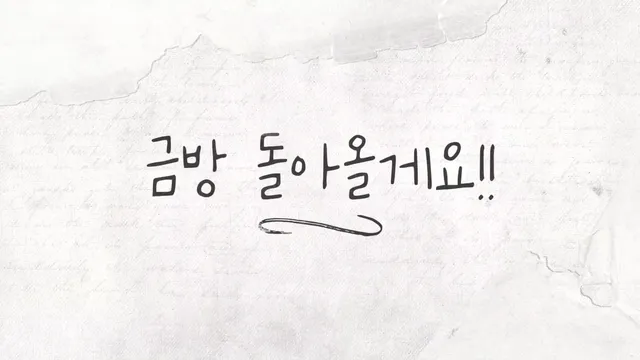 금방 돌아올게요!!